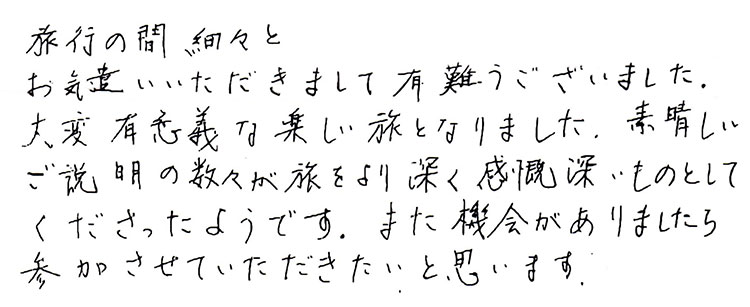 旅行の間 細々と
お気遣いいただきまして有難うございました.
大変有意義な楽しい旅となりました. 素晴しい
ご説明の数々が旅をより深く感慨深いものとして
くださったようです. また機会がありましたら
参加させていただきたいと思います.